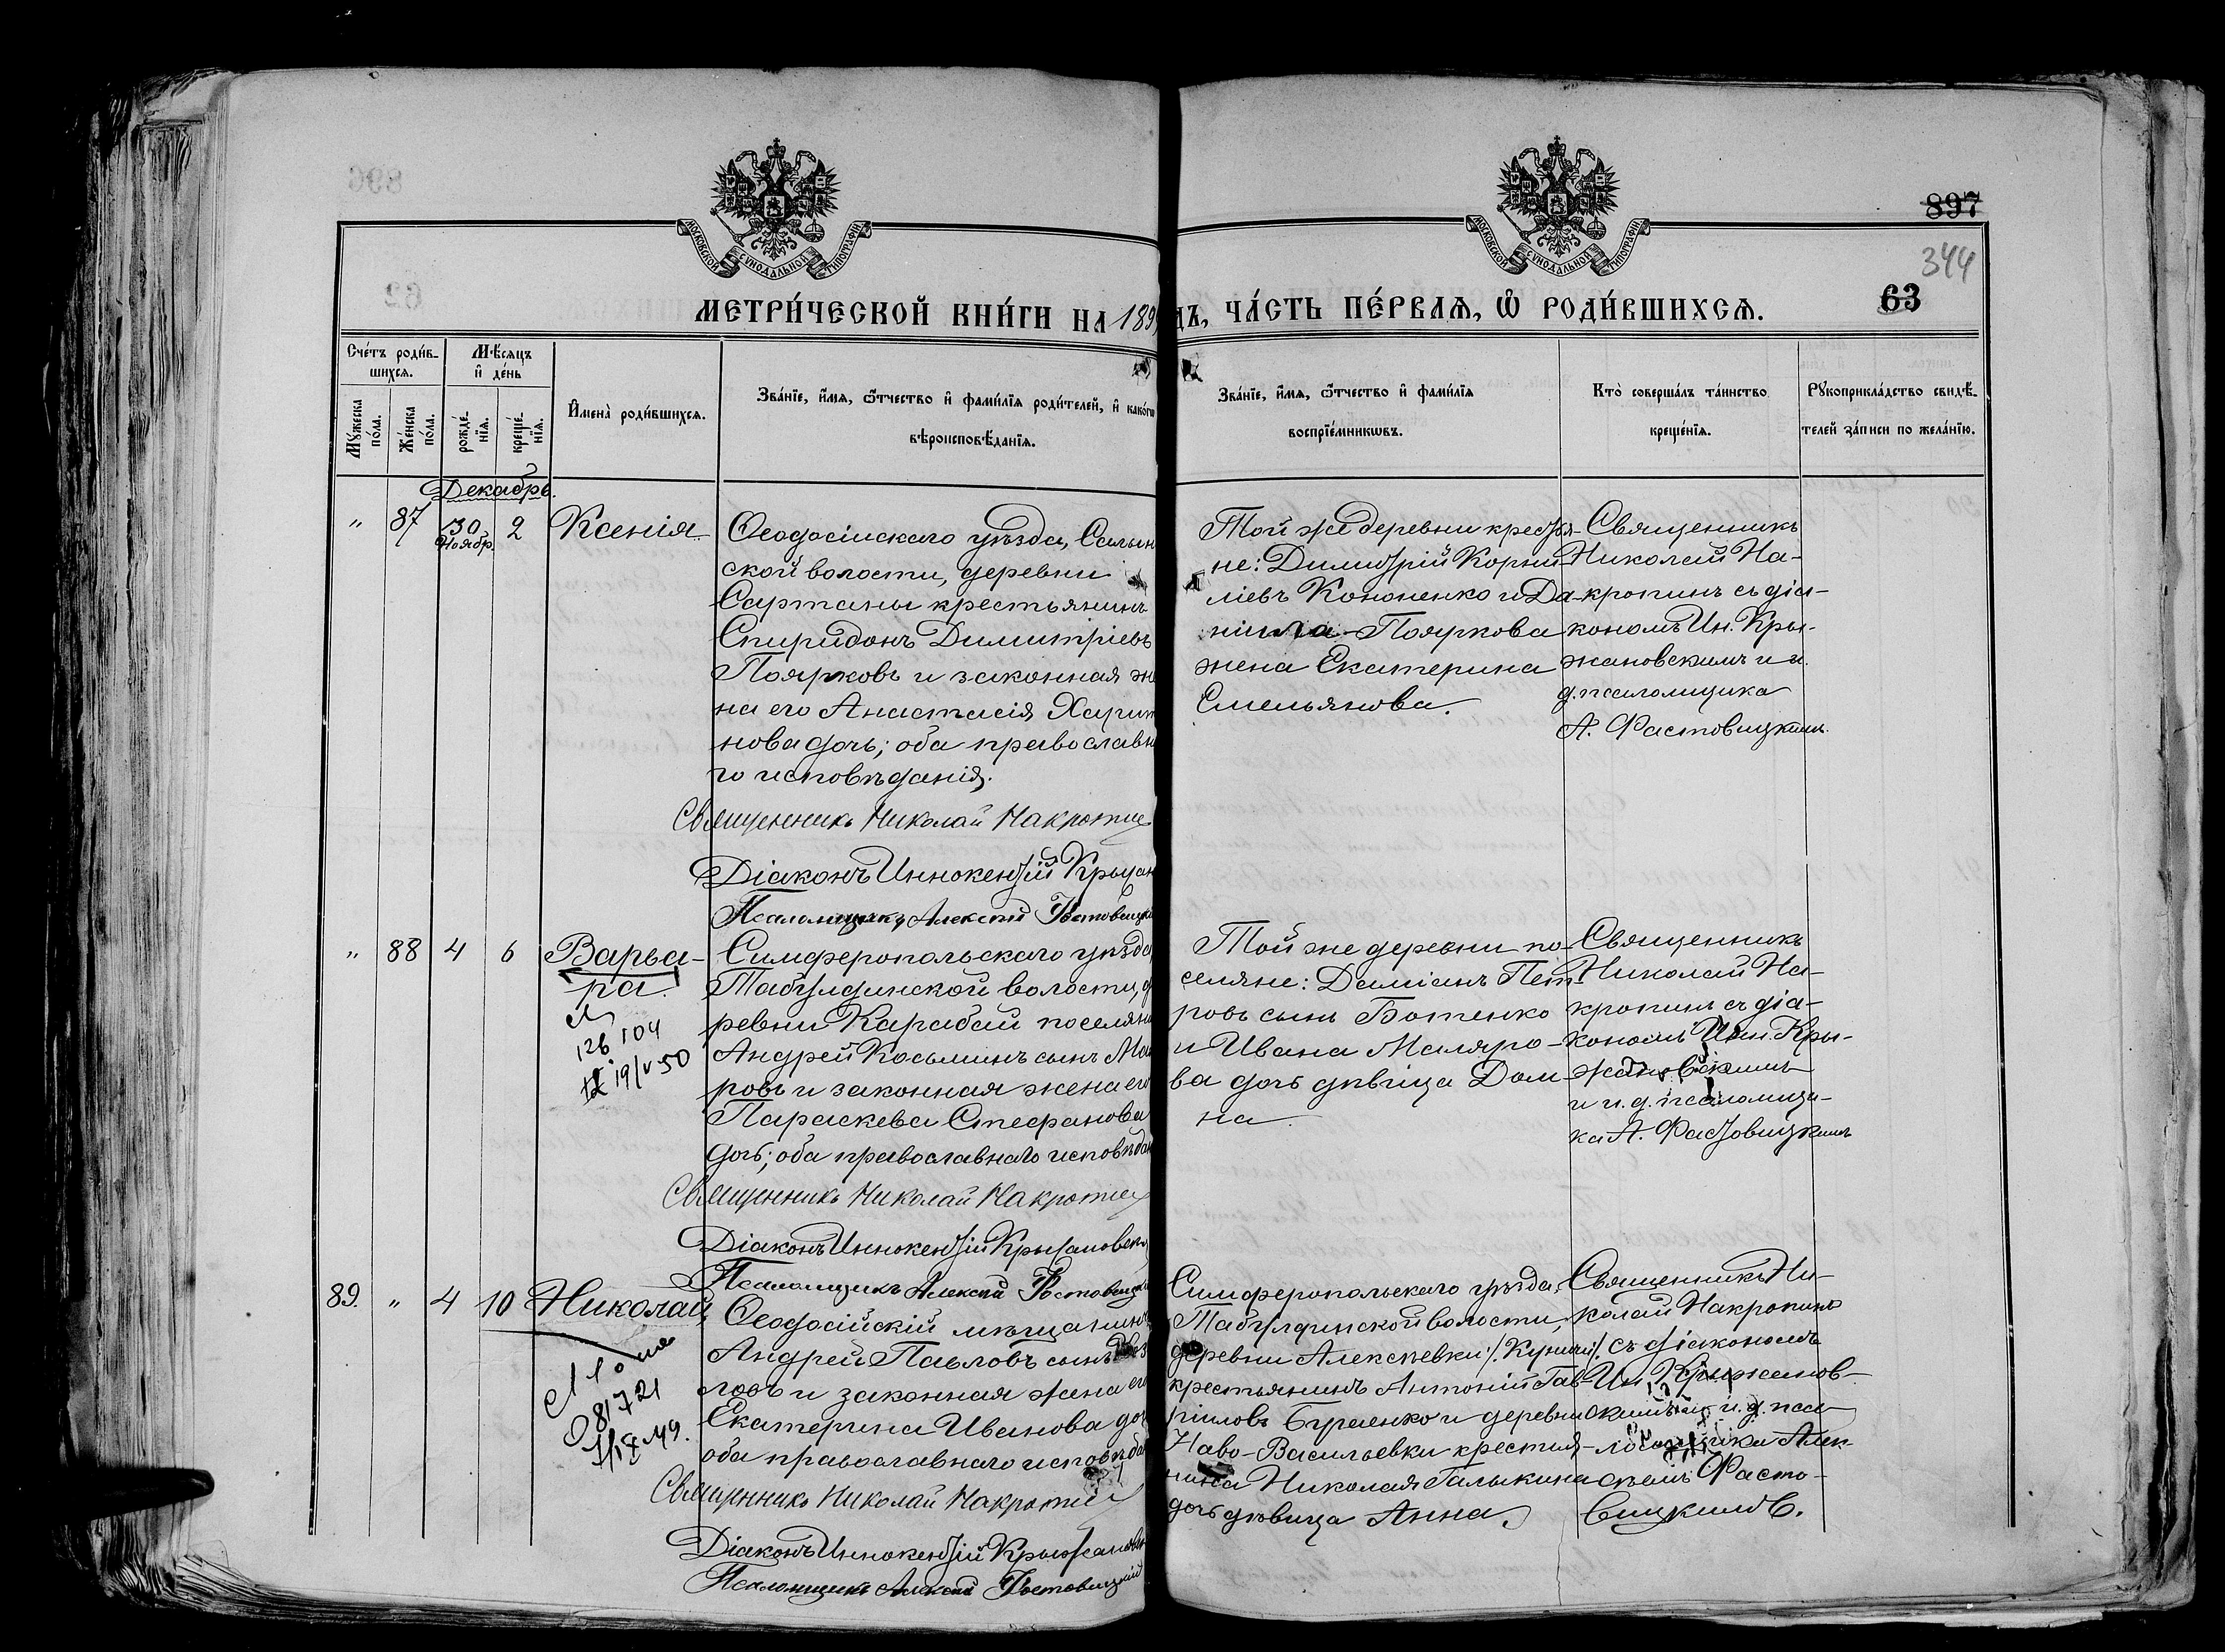 897
344
63
МОСКОВСКОЙ СѴНОДАЛЬНОЙ ТИПОГРАФІИ
МОСКОВСКОЙ СѴНОДАЛЬНОЙ ТИПОГРАФІИ
МЕТРИ́ЧЕСКОЙ КНИ́ГИ НА 189
ДЪ, ЧА́СТЬ ПЕ́РВАѦ, Ѡ҆ РОДИ́ВШИХСѦ.
Сче́тъ роди́в-
шихсѧ.
Мѣ́сѧцъ
и҆ де́нь
Мꙋ́жеска
по́ла.
Же́нска
по́ла.
рожде́-
нїѧ.
креще́-
нїѧ.
И҆мена̀ роди́вшихсѧ.
Зва́нїе, и҆́мѧ, ѻ҆́тчество и҆ фами́лїѧ роди́телей, и҆ како́гw
вѣроисповѣ́данїѧ.
Зва́нїе, и҆́мѧ, ѻ҆́тчество и҆ фами́лїѧ
воспрїе́мникwвъ.
Кто̀ соверша́лъ та́инство
креще́нїѧ.
Рꙋкоприкла́дство свидѣ́-
телей за́писи по жела́нїю.
Декабрь.
" 87 30 Ноябр. 2 Ксенія
Ѳеодосійскаго уѣзда, Салын
ской волости, деревни
Сартаны крестьянинъ
Спиридонъ Димитріевъ
Поярковъ и законная же
на его Анастасія Харит
нова дочь; оба православн
го исповѣданія.
Священникъ Николай Накропин
Діаконъ Иннокентій Крыжан
Псаломщикъ Алексѣй Фастовицкі
Той же деревни крестья-
не: Димитрій Корни-
ліевъ Кононенко и Да-
ніила Пояркова
жена Екатерина
Емельянова.
Священникъ
Николай На-
кропинъ съ діа-
кономъ Ин. Кры-
жановскимъ и и.
д. псаломщика
А. Фастовицкимъ.
" 88 4 6 Варва-
ра.
126 104
19/V 50
Симферопольскаго уѣзда
Табулдинской волости, д
ревни Карабай поселяни
Андрей Косьминъ сынъ Ма
ровъ и законная жена его
Параскева Стефанова
дочь; оба православнаго исповѣдан
Священникъ Николай Накропин
Діаконъ Иннокентій Крыжановск
Псаломщикъ Алексѣй Фастовицкі
Той же деревни по-
селяне: Даміанъ Пет-
ровъ сынъ Ботенко
и Ивана Маляро-
ва дочь дѣвица Дом-
на.
Священникъ
Николай На-
кропинъ съ діа-
кономъ Инн. Кры-
жановскимъ
и и. д. псаломщи-
ка А. Фастовицкимъ
89. " 4 10 Николай
081721
Ѳеодосійскій мѣщанинъ
Андрей Павловъ сынъ
ловъ и законная жена его
Екатерина Иванова доч
оба православнаго исповѣдан
Священникъ Николай Накропин
Діаконъ Иннокентій Крыжановск
Псаломщикъ Алексѣй Фастовицкій
Симферопольскаго уѣзда,
Табулдинской волости,
деревни Алексѣевки
крестьянинъ Антоній Гав-
ріиловъ Бураенко и деревни
Наво-Васильевки крестья-
нина Николая Галыкина
дочь дѣвица Анна.
Священникъ Ни-
колай Накропинъ
съ діакономъ
Ин. Крыжанов-
скимъ и и. д. пса-
ломщика Алек-
сѣемъ Фасто-
вицкимъ.